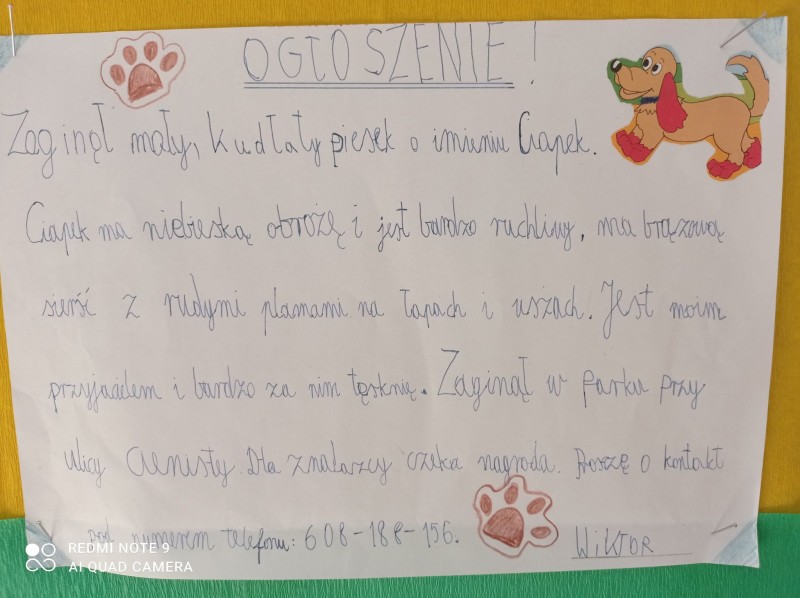 OGŁOSZENIE!
Zaginął mały, kudłaty piesek o imieniu Ciapek.
Ciapek ma niebieską obrożę i jest bardzo ruchliwy, ma brązową
sierść z rudymi plamami na łapach i uszach. Jest moim
przyjacielem i bardzo za nim tęsknię. Zaginął w parku przy
ulicy Cienistej. Dla znalazcy czeka nagroda. Proszę o kontakt
pod numerem telefonu: 608-188-156.
WiKTOR
REDMI NOTE 9
AI QUAD CAMERA